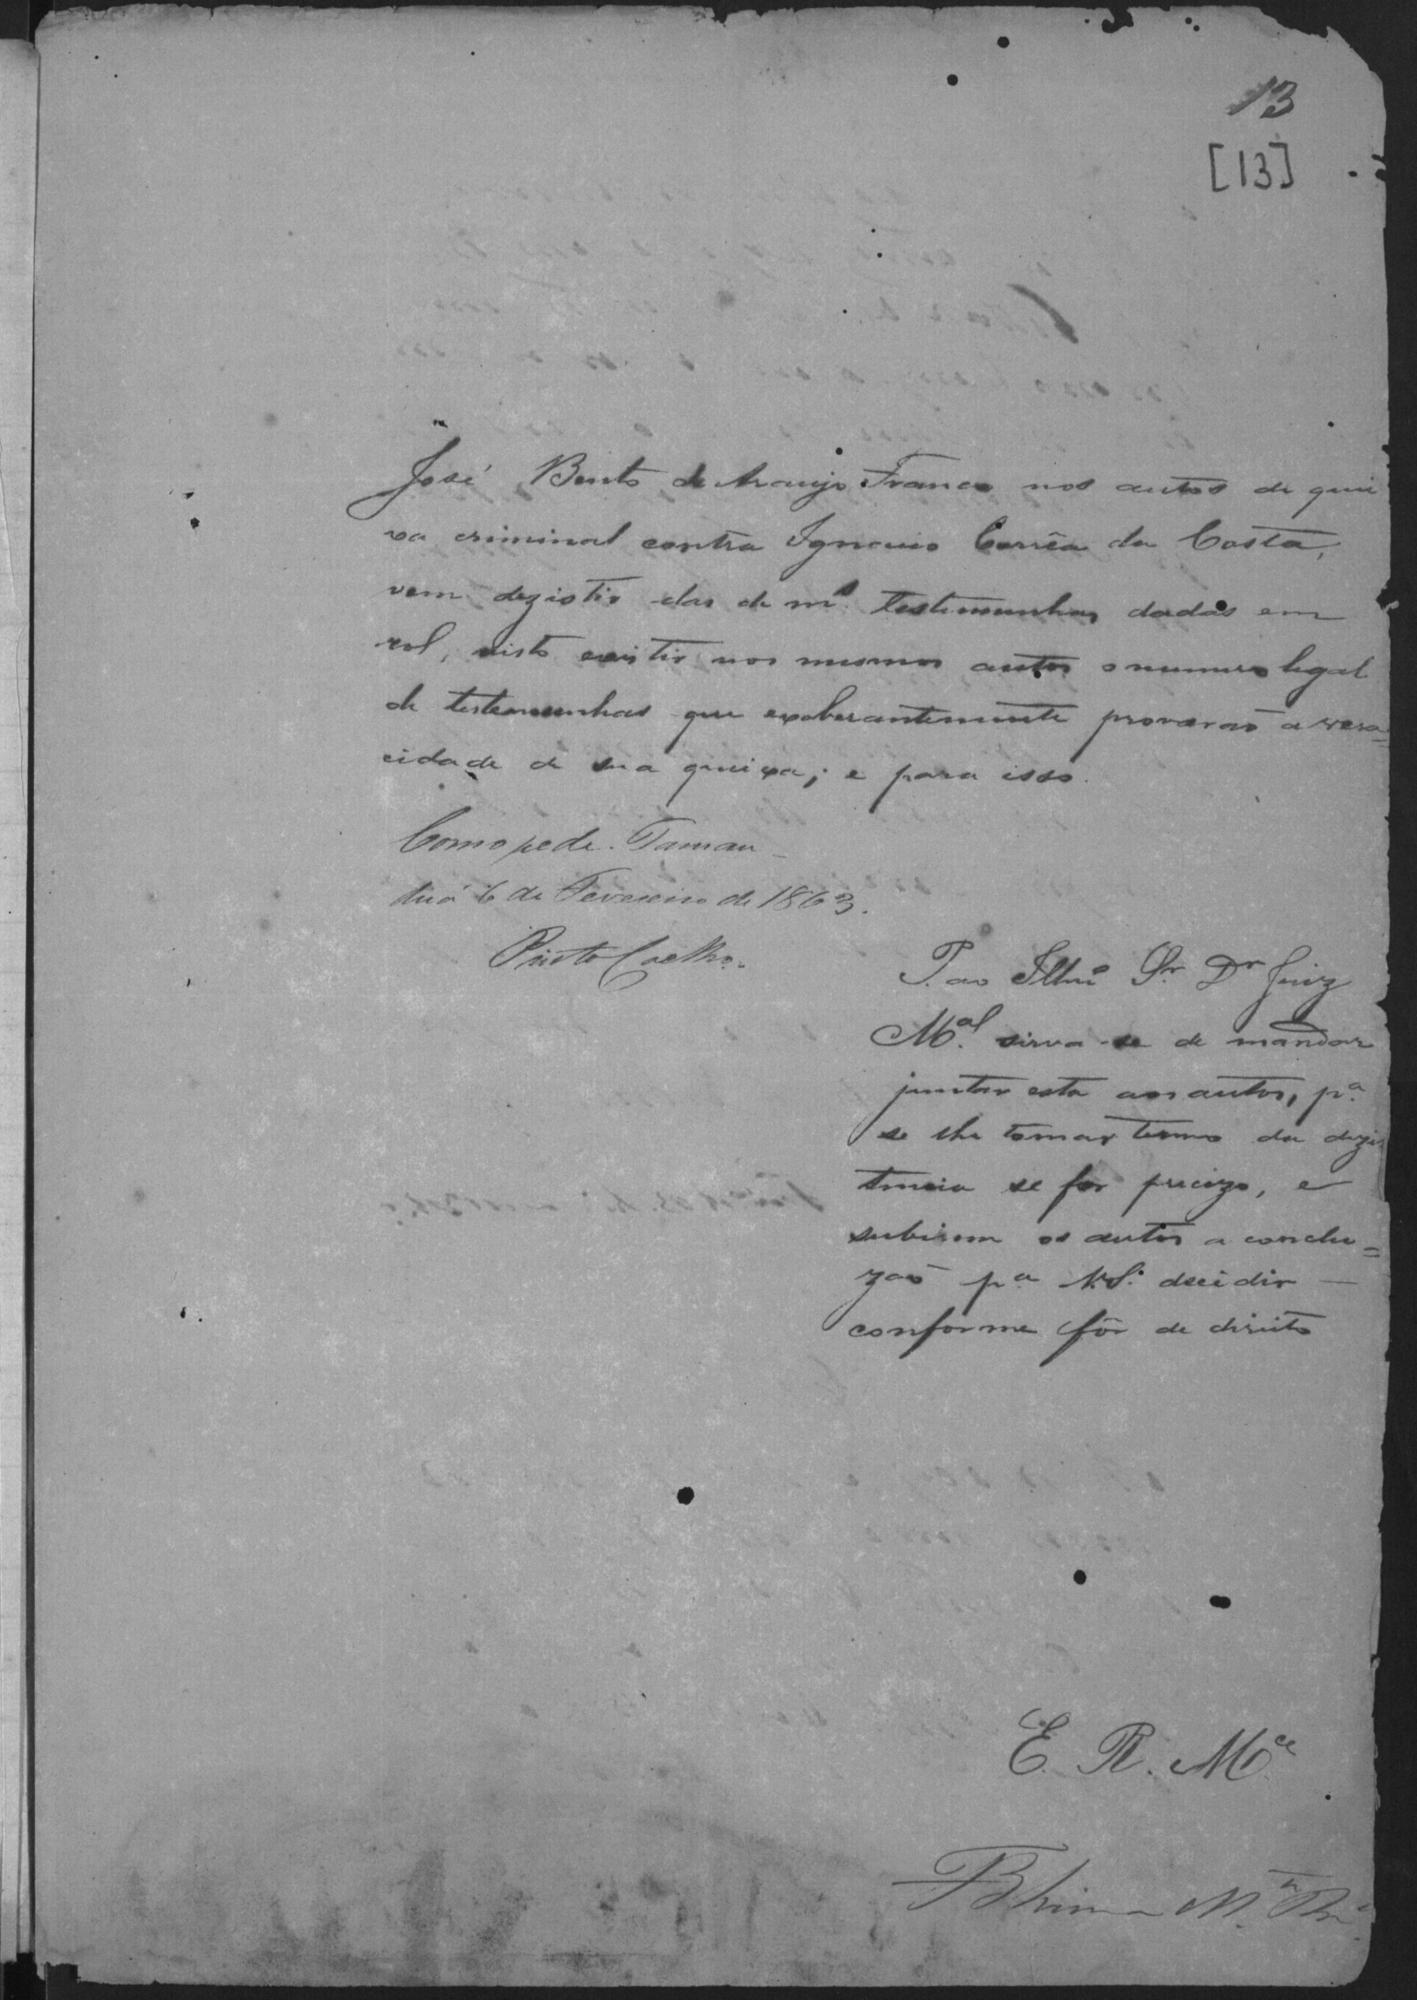 13
[13]
José Bento de Araujo Franco nos autos de quei
xa criminal contra Ignacio Corrêa da Costa,
vem dezistir das de m.s testemunhas dadas em
rol, visto existir nos mesmos autos o numero legal
de testemunhas que exoberantemente provarão a vera=
cidade de sua queixa; e para isso.
Como pede. Taman
duá 6 de Fevereiro de 1863.
Pinto Coelho.
P. ao Illmo Sr. Dr Juiz
M.al sirva-se de mandar
juntar esta aos autos, p.a
se lhe tomar termo da dezis
tencia se for precizo, e
subirem os autos a conclu=
zão p.a V.S. decidir —
conforme fôr de direito
E. R. M.ce